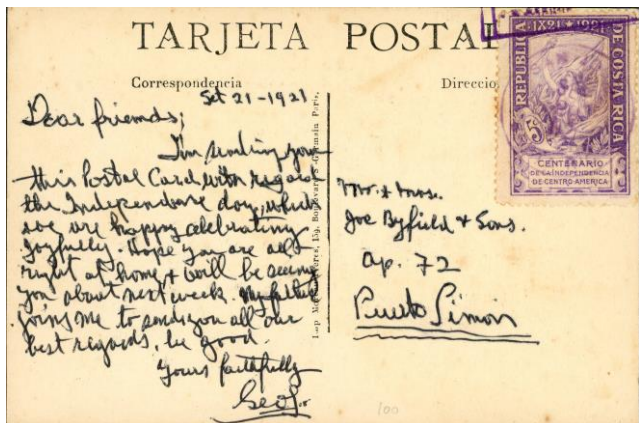 TARJETA POSTAL
Correspondencia
Direccio
Set 21-1921
Dear friends;
I'm sending you
this Postal Card with regard
the Independance day, which
we are happy celebrating
joyfully. Hope you are all
right at home & will be seeing
you about next week. My father
joins me to send you all our
best regards, be good.
Yours faithfully
Geo
Mr. & Mrs.
Joe Byfield & Sons.
Ap. 72
Puerto Limon
REPUBLICA DE COSTA RICA
1821 * 1921
5
CENTENARIO
DE LA INDEPENDENCIA
DE CENTRO AMERICA
Imp. 159, Germain Paris.
100